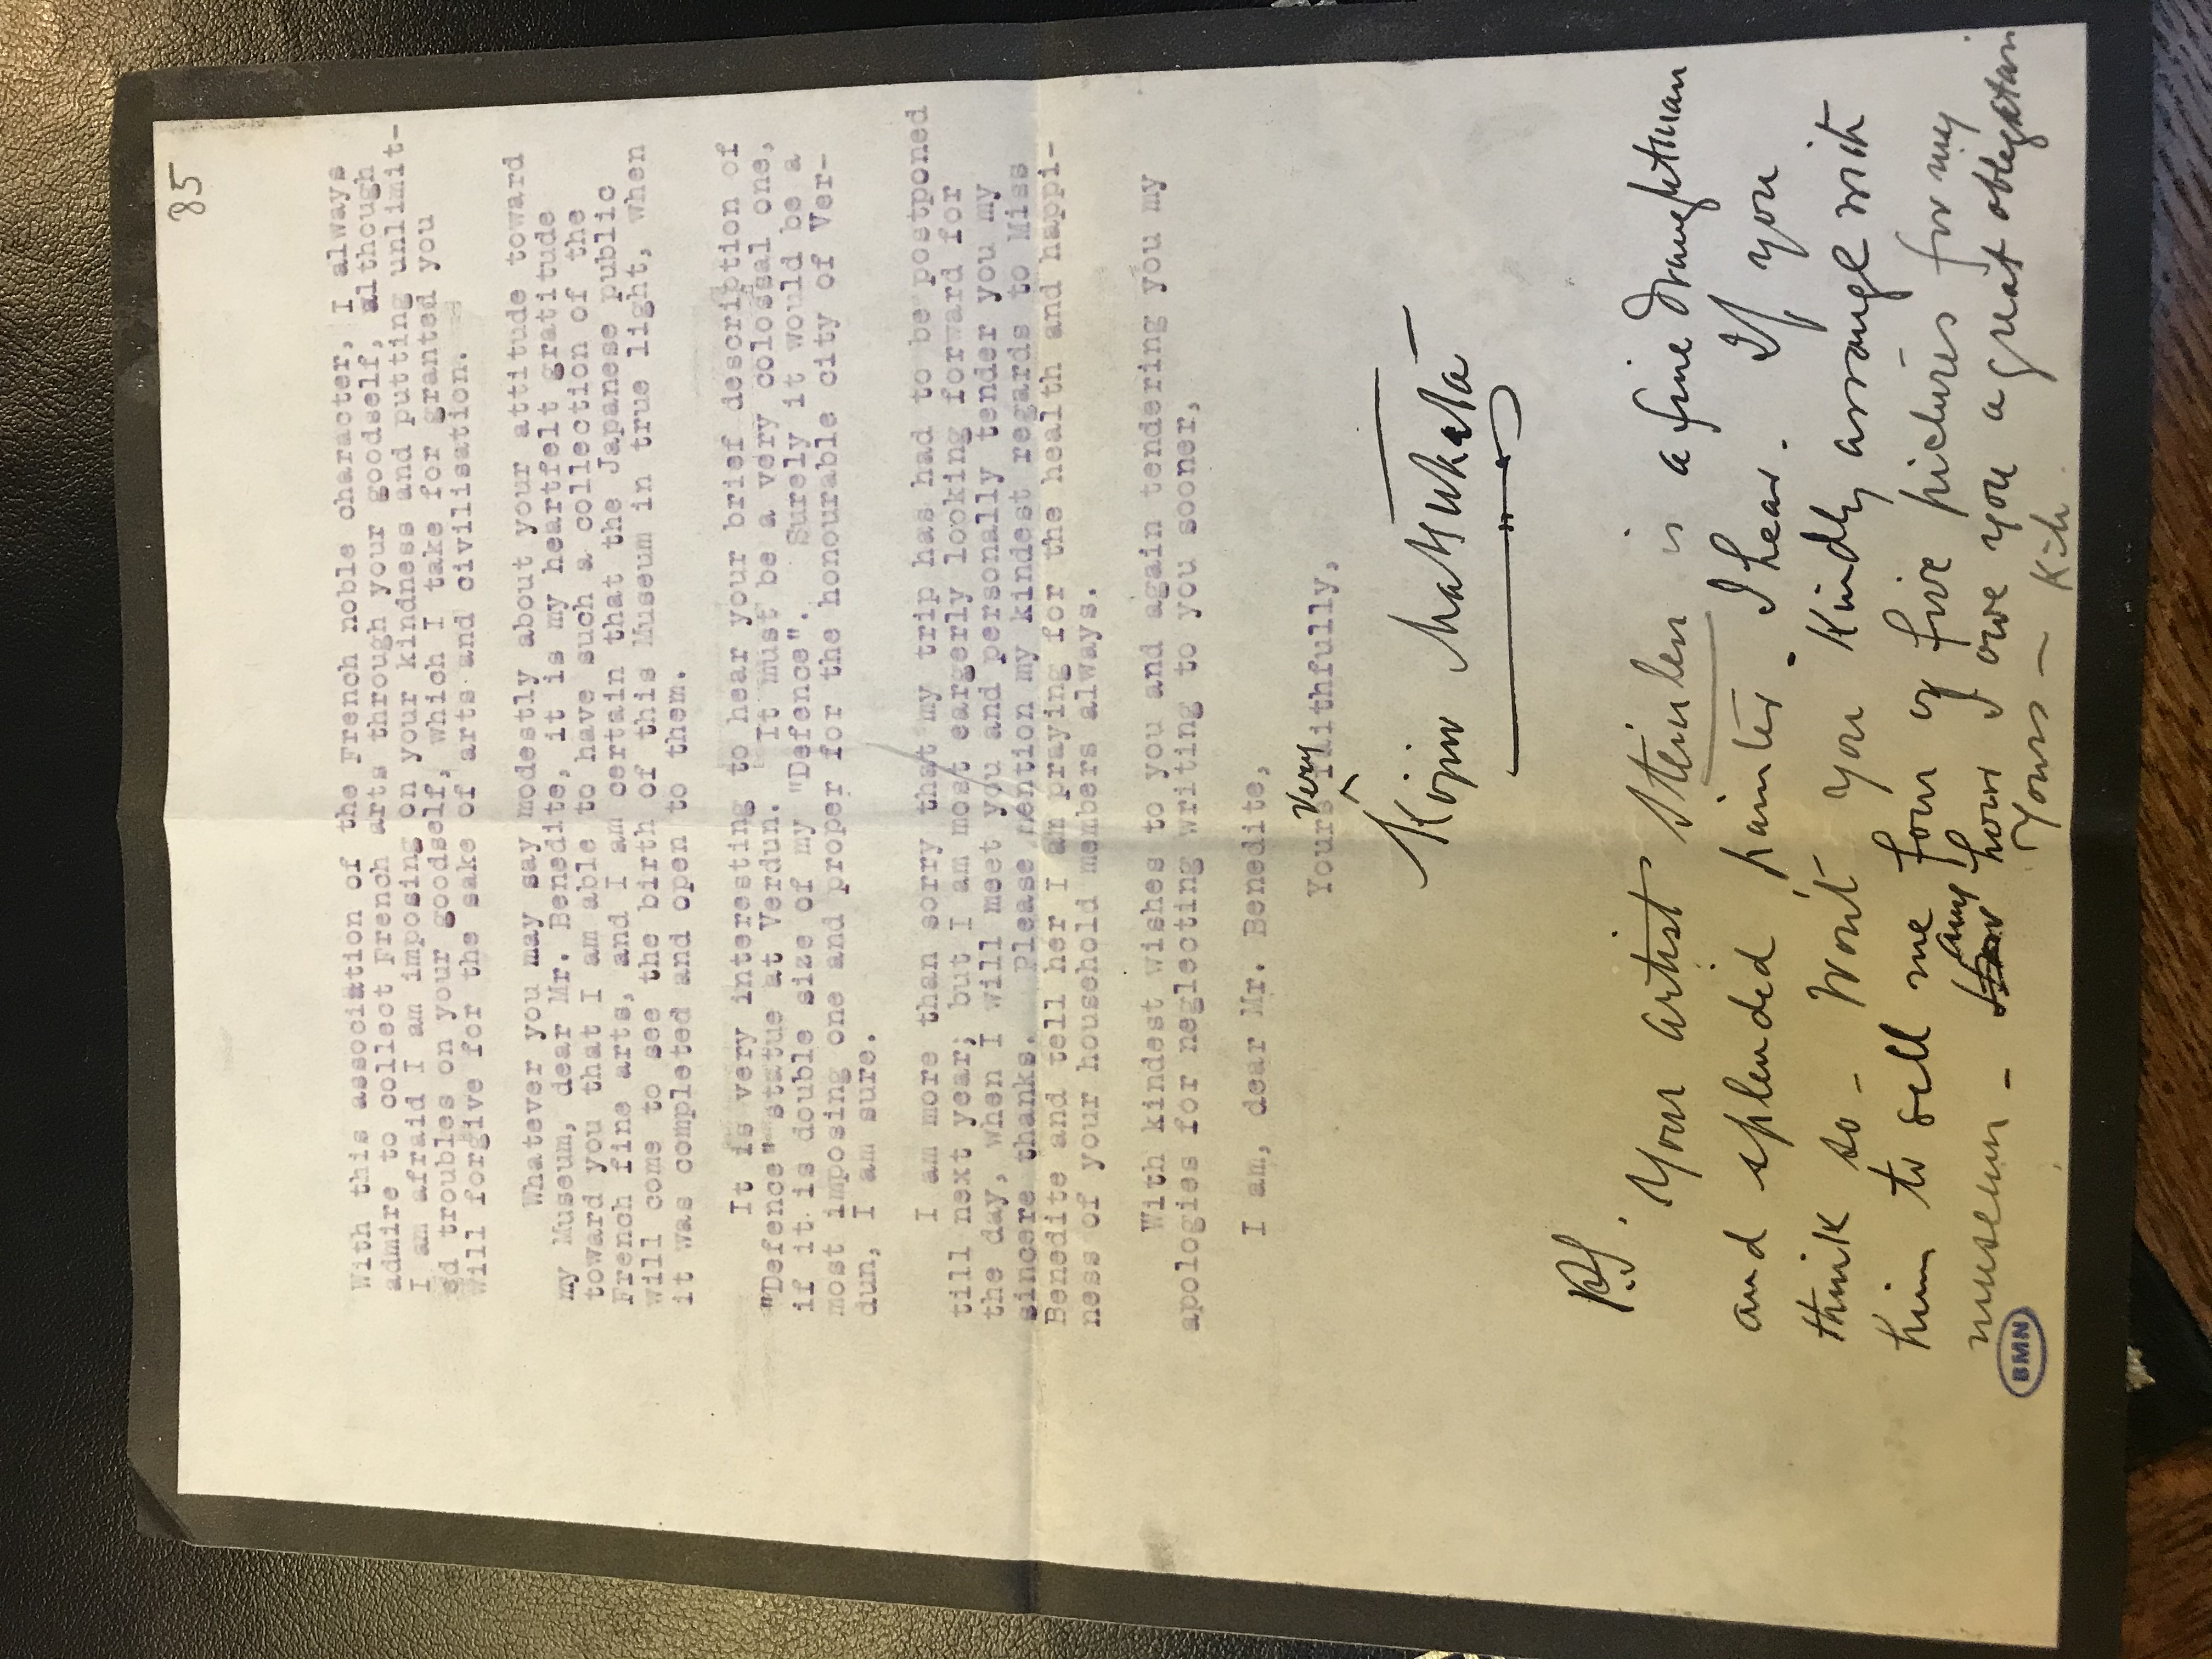 85
With this association of the French noble character, I always
admire to collect French arts through your goodself, although
I am afraid I am imposing on your kindness and putting unlimit-
ed troubles on your goodself, which I take for granted you
will forgive for the sake of arts and civilisation.
Whatever you may say modestly about your attitude toward
my Museum, dear Mr. Benedite, it is my heartfelt gratitude
toward you that I am able to have such a collection of the
French fine arts, and I am certain that the Japanese public
will come to see the birth of this Museum in true light, when
it was completed and open to them.
It is very interesting to hear your brief description of
"Defence" statue at Verdun. It must be a very colossal one,
if it is double size of my "Defence". Surely it would be a
most imposing one and proper for the honourable city of Ver-
dun, I am sure.
I am more than sorry that my trip has had to be postponed
till next year; but I am most eargerly looking forward for
the day, when I will meet you and personally tender you my
sincere thanks. Please mention my kindest regards to Miss
Benedite and tell her I am praying for the health and happi-
ness of your household members always.
With kindest wishes to you and again tendering you my
apologies for neglecting writing to you sooner,
I am, dear Mr. Benedite,
Yours very faithfully,
Kojiro Matsukata
P.S. Your artist Steinlen is a fine draughtman
and splended painter. I hear. If you
think so - Wont you Kindly arrange with
him to sell me four or five pictures for my
museum - any how I owe you a great obligation
Yours - K.M.
BMN